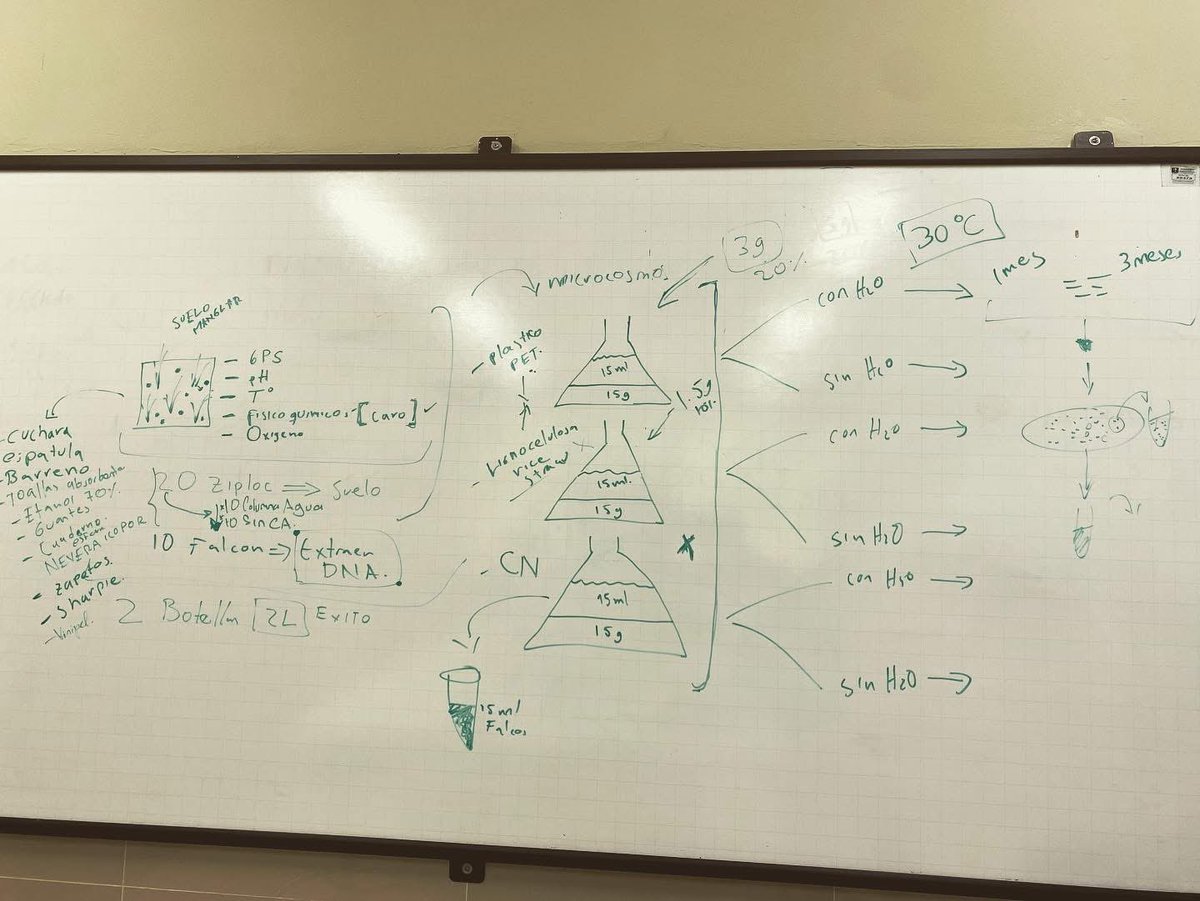 SUELO
MANGLAR
- GPS
- pH
- T°
- Fisicoquimicos - [caro] ✓
- Oxigeno
- Cuchara
espatula
- Barreno
- Toallas absorbente
- Etanol 70%
- Guantes
- Cuaderno
esfero
- NEVERA ICOPOR
- Zapatos
- Sharpie.
- Vinipel.
20 Ziploc ⇒ Suelo
*10 Columna Agua
*10 Sin CA.
10 Falcon ⇒ Extraer
DNA.
2 Botellas [2L] EXITO
microcosmo.
- plastico
PET.
- Lignocelulosa
rice
straw
- CN
15ml
15g
15ml
15g
15ml
15g
15ml
Falcon
3g
20%
1.5g
10%
con H2O →
sin H2O →
con H2O →
sin H2O →
con H2O →
sin H2O →
30°C
1 mes
3 meses